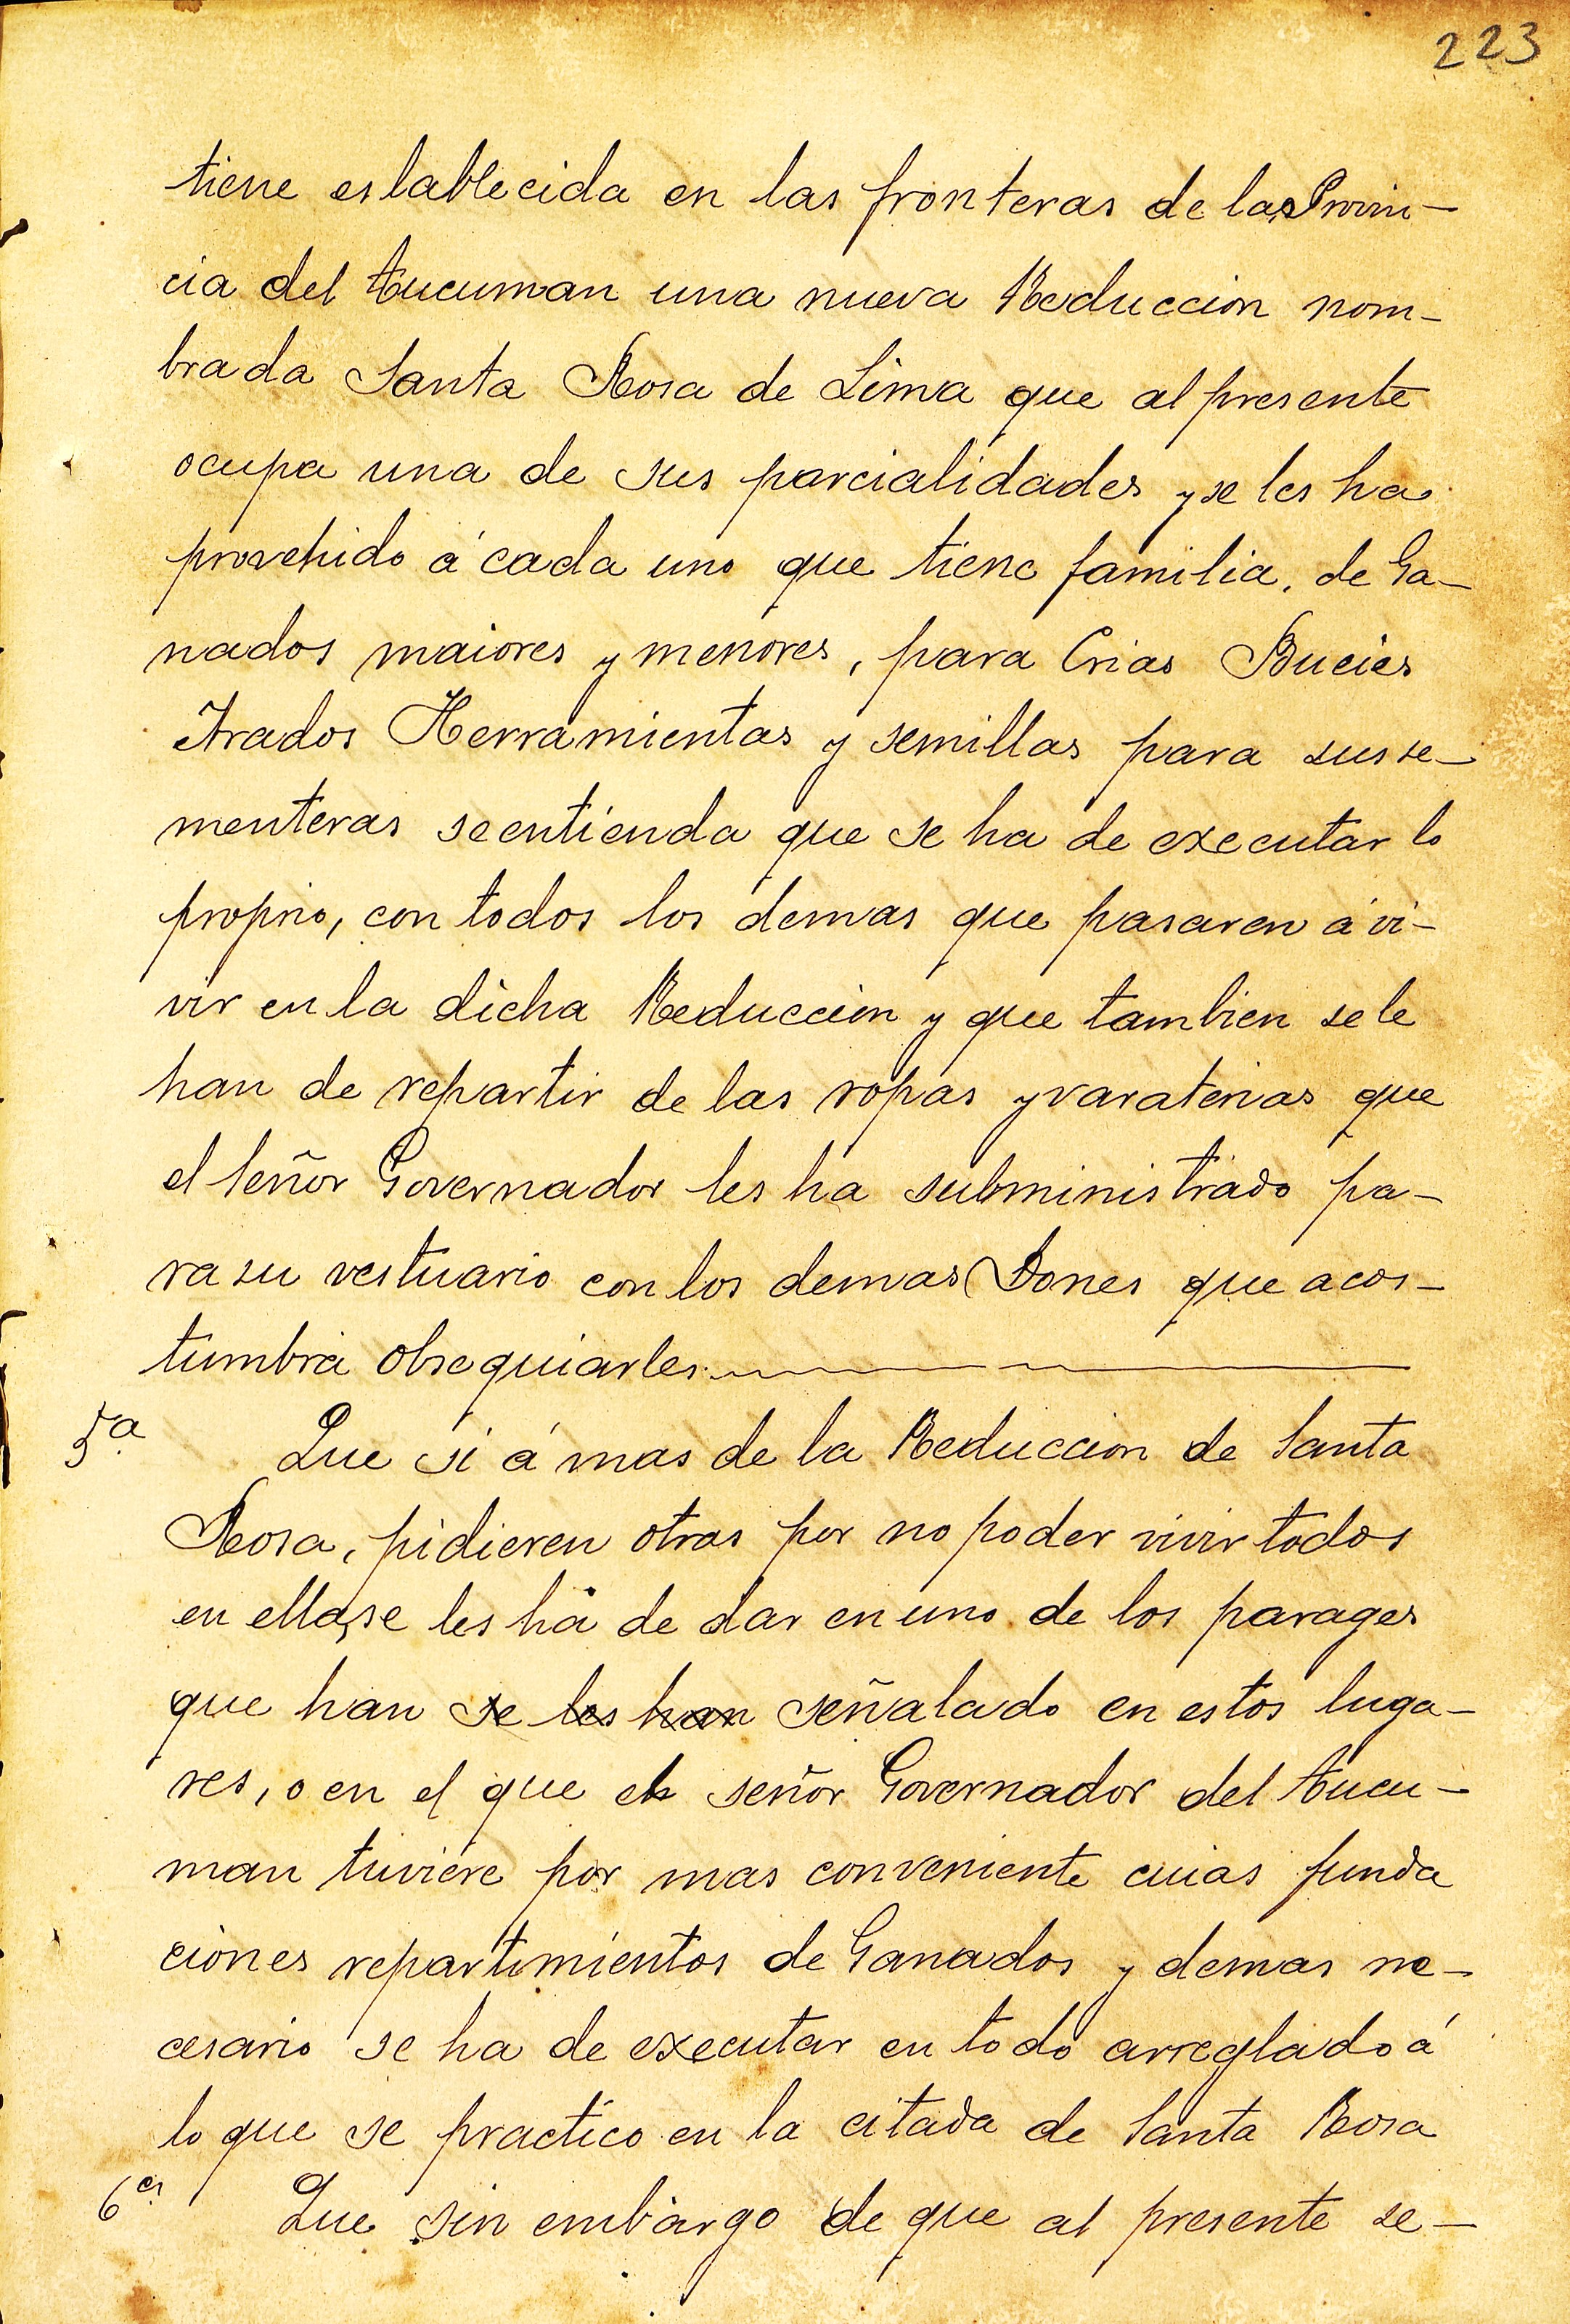 223
tiene establecida en las fronteras de las Provin-
cia del Tucuman una nueva Reduccion nom-
brada Santa Rosa de Lima que al presente
ocupa una de sus parcialidades y se les ha
provehido á cada uno que tiene familia, de Ga-
nados maiores y menores, para Crias Bueies
Arados Herramientas y semillas para sus se-
menteras se entienda que se ha de executar lo
proprio, con todos los demas que pasaren á vi-
vir en la dicha Reduccion y que tambien se le
han de repartir de las ropas y varaterias que
el señor Governador les ha subministrado pa-
ra su vestuario con los demas Dones que acos-
tumbra obsequiarles.
5a Que si á mas de la Reduccion de Santa
Rosa, pidieren otras por no poder vivir todos
en ella, se les ha de dar en uno de los parages
que han se les han señalado en estos luga-
res, o en el que el señor Governador del tucu-
man tuviere por mas conveniente cuias funda
ciones repartimientos de Ganados y demas ne-
cesario se ha de executar en todo arreglado á
lo que se practico en la citada de Santa Rosa
6a Que sin embargo de que al presente se-